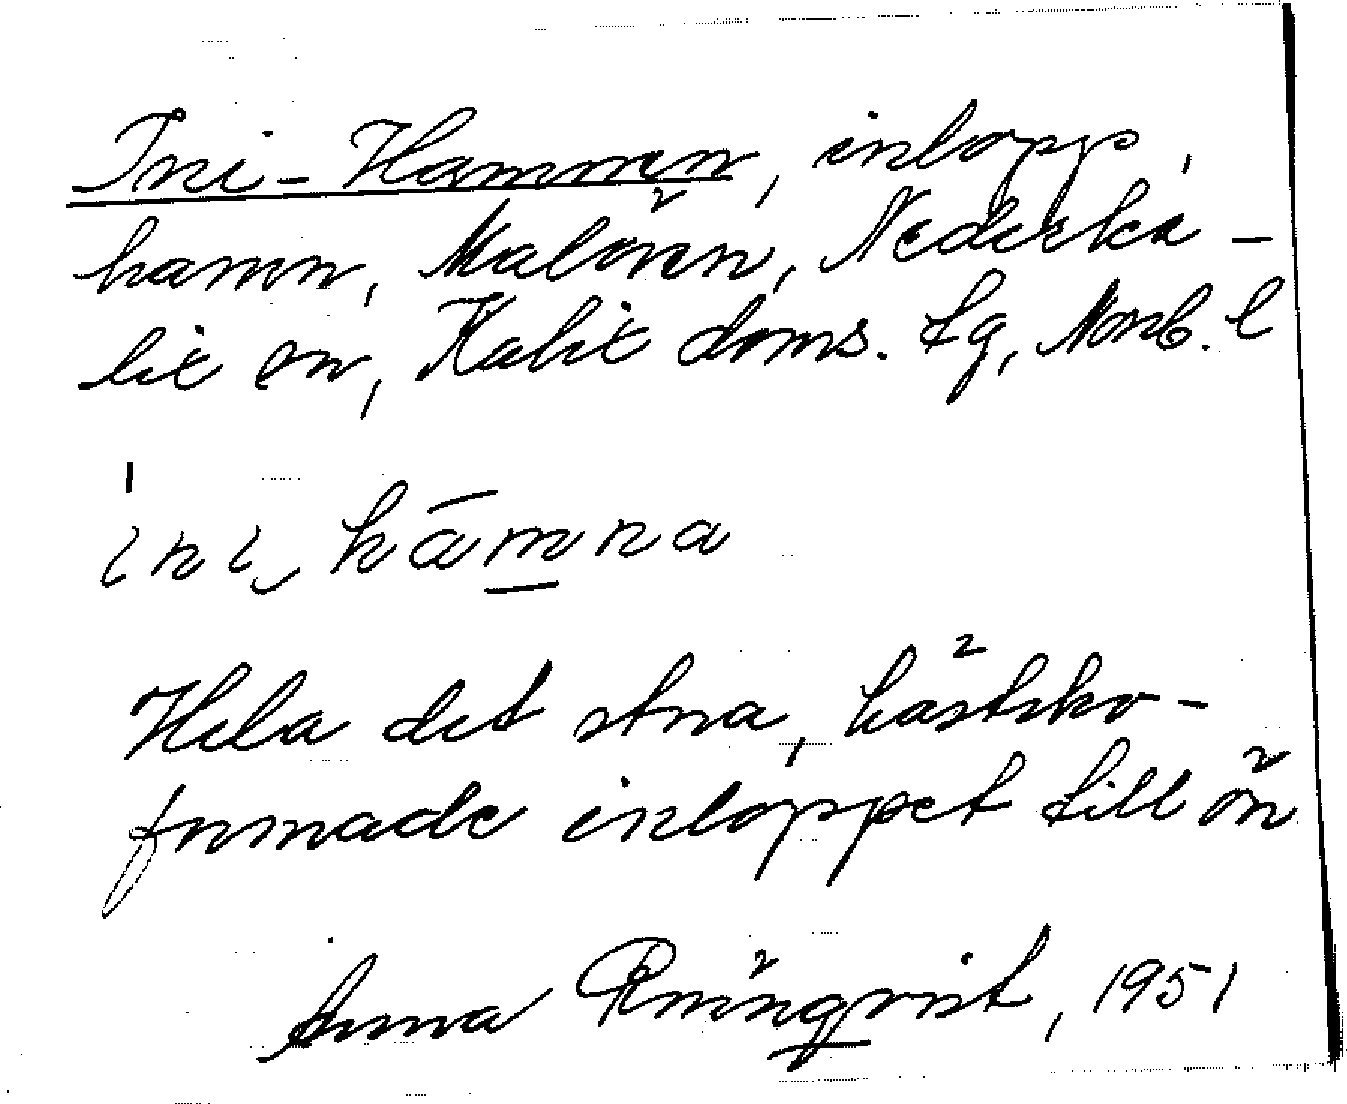 Ini-Hamnen, inlopp,
hamn, Malören, Nederka-
lix sn, Kalix doms. tg, Norrb. l
ini hāmna
Hela det stora, hästsko-
formade inloppet till ön
Anna Rönnqvist, 1951